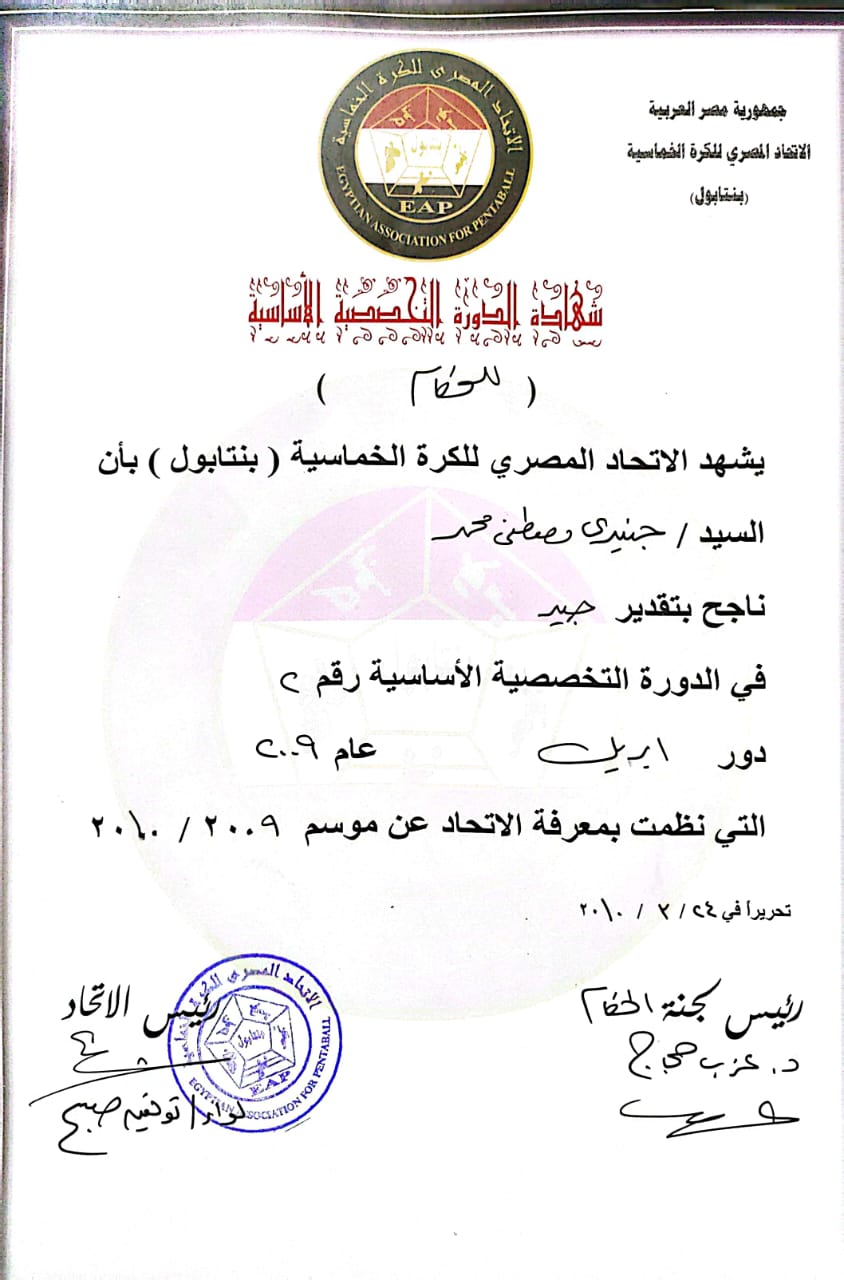 جمهورية مصر العربية
الاتحاد المصري للكرة الخماسية
(بنتابول)
الاتحاد المصرى للكرة الخماسية
بنتابول
EAP
EGYPTIAN ASSOCIATION FOR PENTABALL
شهادة الدورة التخصصية الأساسية
( للحكام )
يشهد الاتحاد المصري للكرة الخماسية ( بنتابول ) بأن
السيد / جنيدى مصطفى محمد
ناجح بتقدير جيد
في الدورة التخصصية الأساسية رقم ٢
دور ابريل عام ٢٠٠٩
التي نظمت بمعرفة الاتحاد عن موسم ٢٠٠٩ / ٢٠١٠
تحريراً في ٢٤ / ٣ / ٢٠١٠
رئيس لجنة الحكام
د. عزب حجاج
رئيس الاتحاد
لواء / توفيق صبح
الاتحاد المصرى للكرة الخماسية
بنتابول
EAP
EGYPTIAN ASSOCIATION FOR PENTABALL